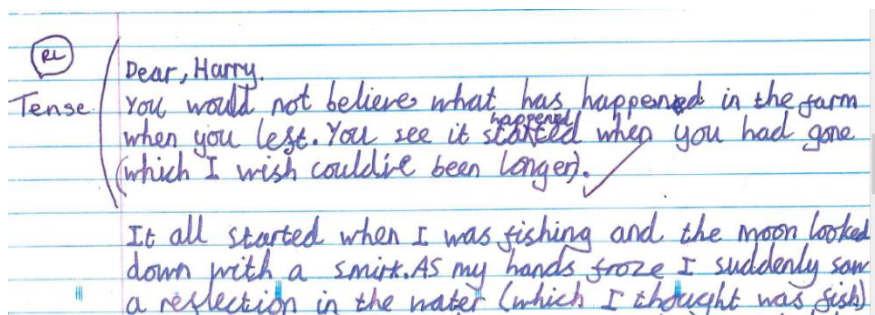 RL
Dear, Harry.
Tense. You would not believe what has happened in the farm
happened
when you left. You see it started when you had gone
(which I wish could've been longer).
It all started when I was fishing and the moon looked
down with a smirk. AS my hands froze I suddenly saw
a reflection in the water (which I thought was fish)